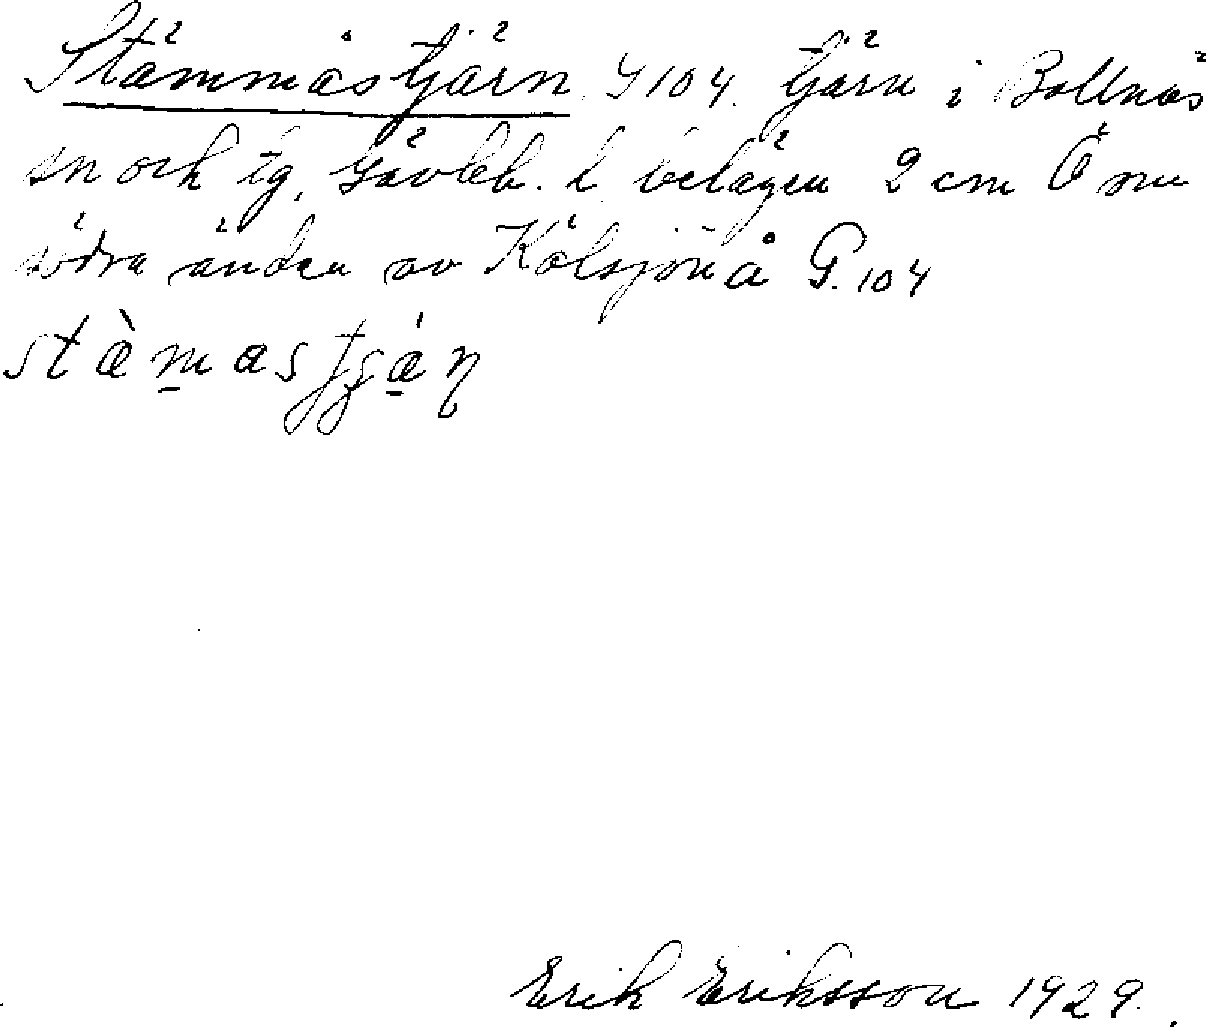 Stämmåstjärn G 104. tjärn i Bollnäs
sn och tg, Gävleb. l belägen 2 cm Ö om
södra änden av Kölsjön å G. 104
stæ̀masʃtʃǽɳ
Erik Eriksson 1929.